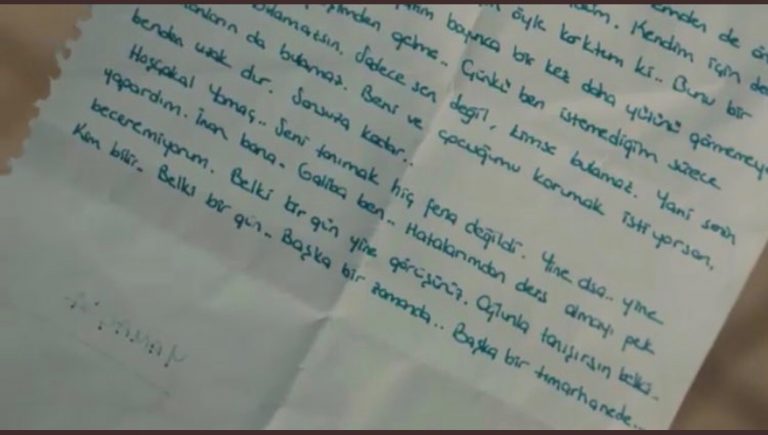 Kendim için
öyle korktum ki.. Bunu bir
boyunca bir kez daha yüzünü
gelme.. Çünkü ben istemediğim sürece
bulamazsın. Sadece sen değil, kimse bulamaz. Yani senin
da bulamaz. Beni ve çocuğumu korumak istiyorsan,
benden uzak dur. Sonsuza kadar..
Hoşçakal Yamaç.. Seni tanımak hiç fena değildi. Yine olsa.. yine
yapardım. İnan bana. Galiba ben.. Hatalarımdan ders almayı pek
beceremiyorum. Belki bir gün yine görüşürüz. Oğlunla tanışırsın belki..
Kim bilir. Belki bir gün.. Başka bir zamanda.. Başka bir tımarhanede...